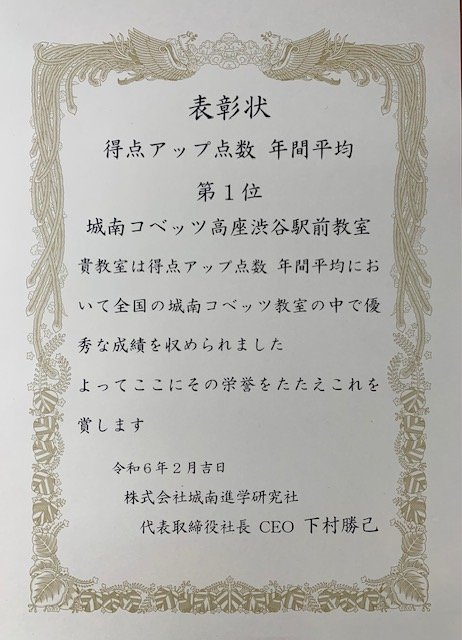 表彰状
得点アップ点数 年間平均
第1位
城南コベッツ高座渋谷駅前教室
貴教室は得点アップ点数 年間平均にお
いて全国の城南コベッツ教室の中で優
秀な成績を収められました
よってここにその栄誉をたたえこれを
賞します
令和6年2月吉日
株式会社城南進学研究社
代表取締役社長 CEO 下村勝己